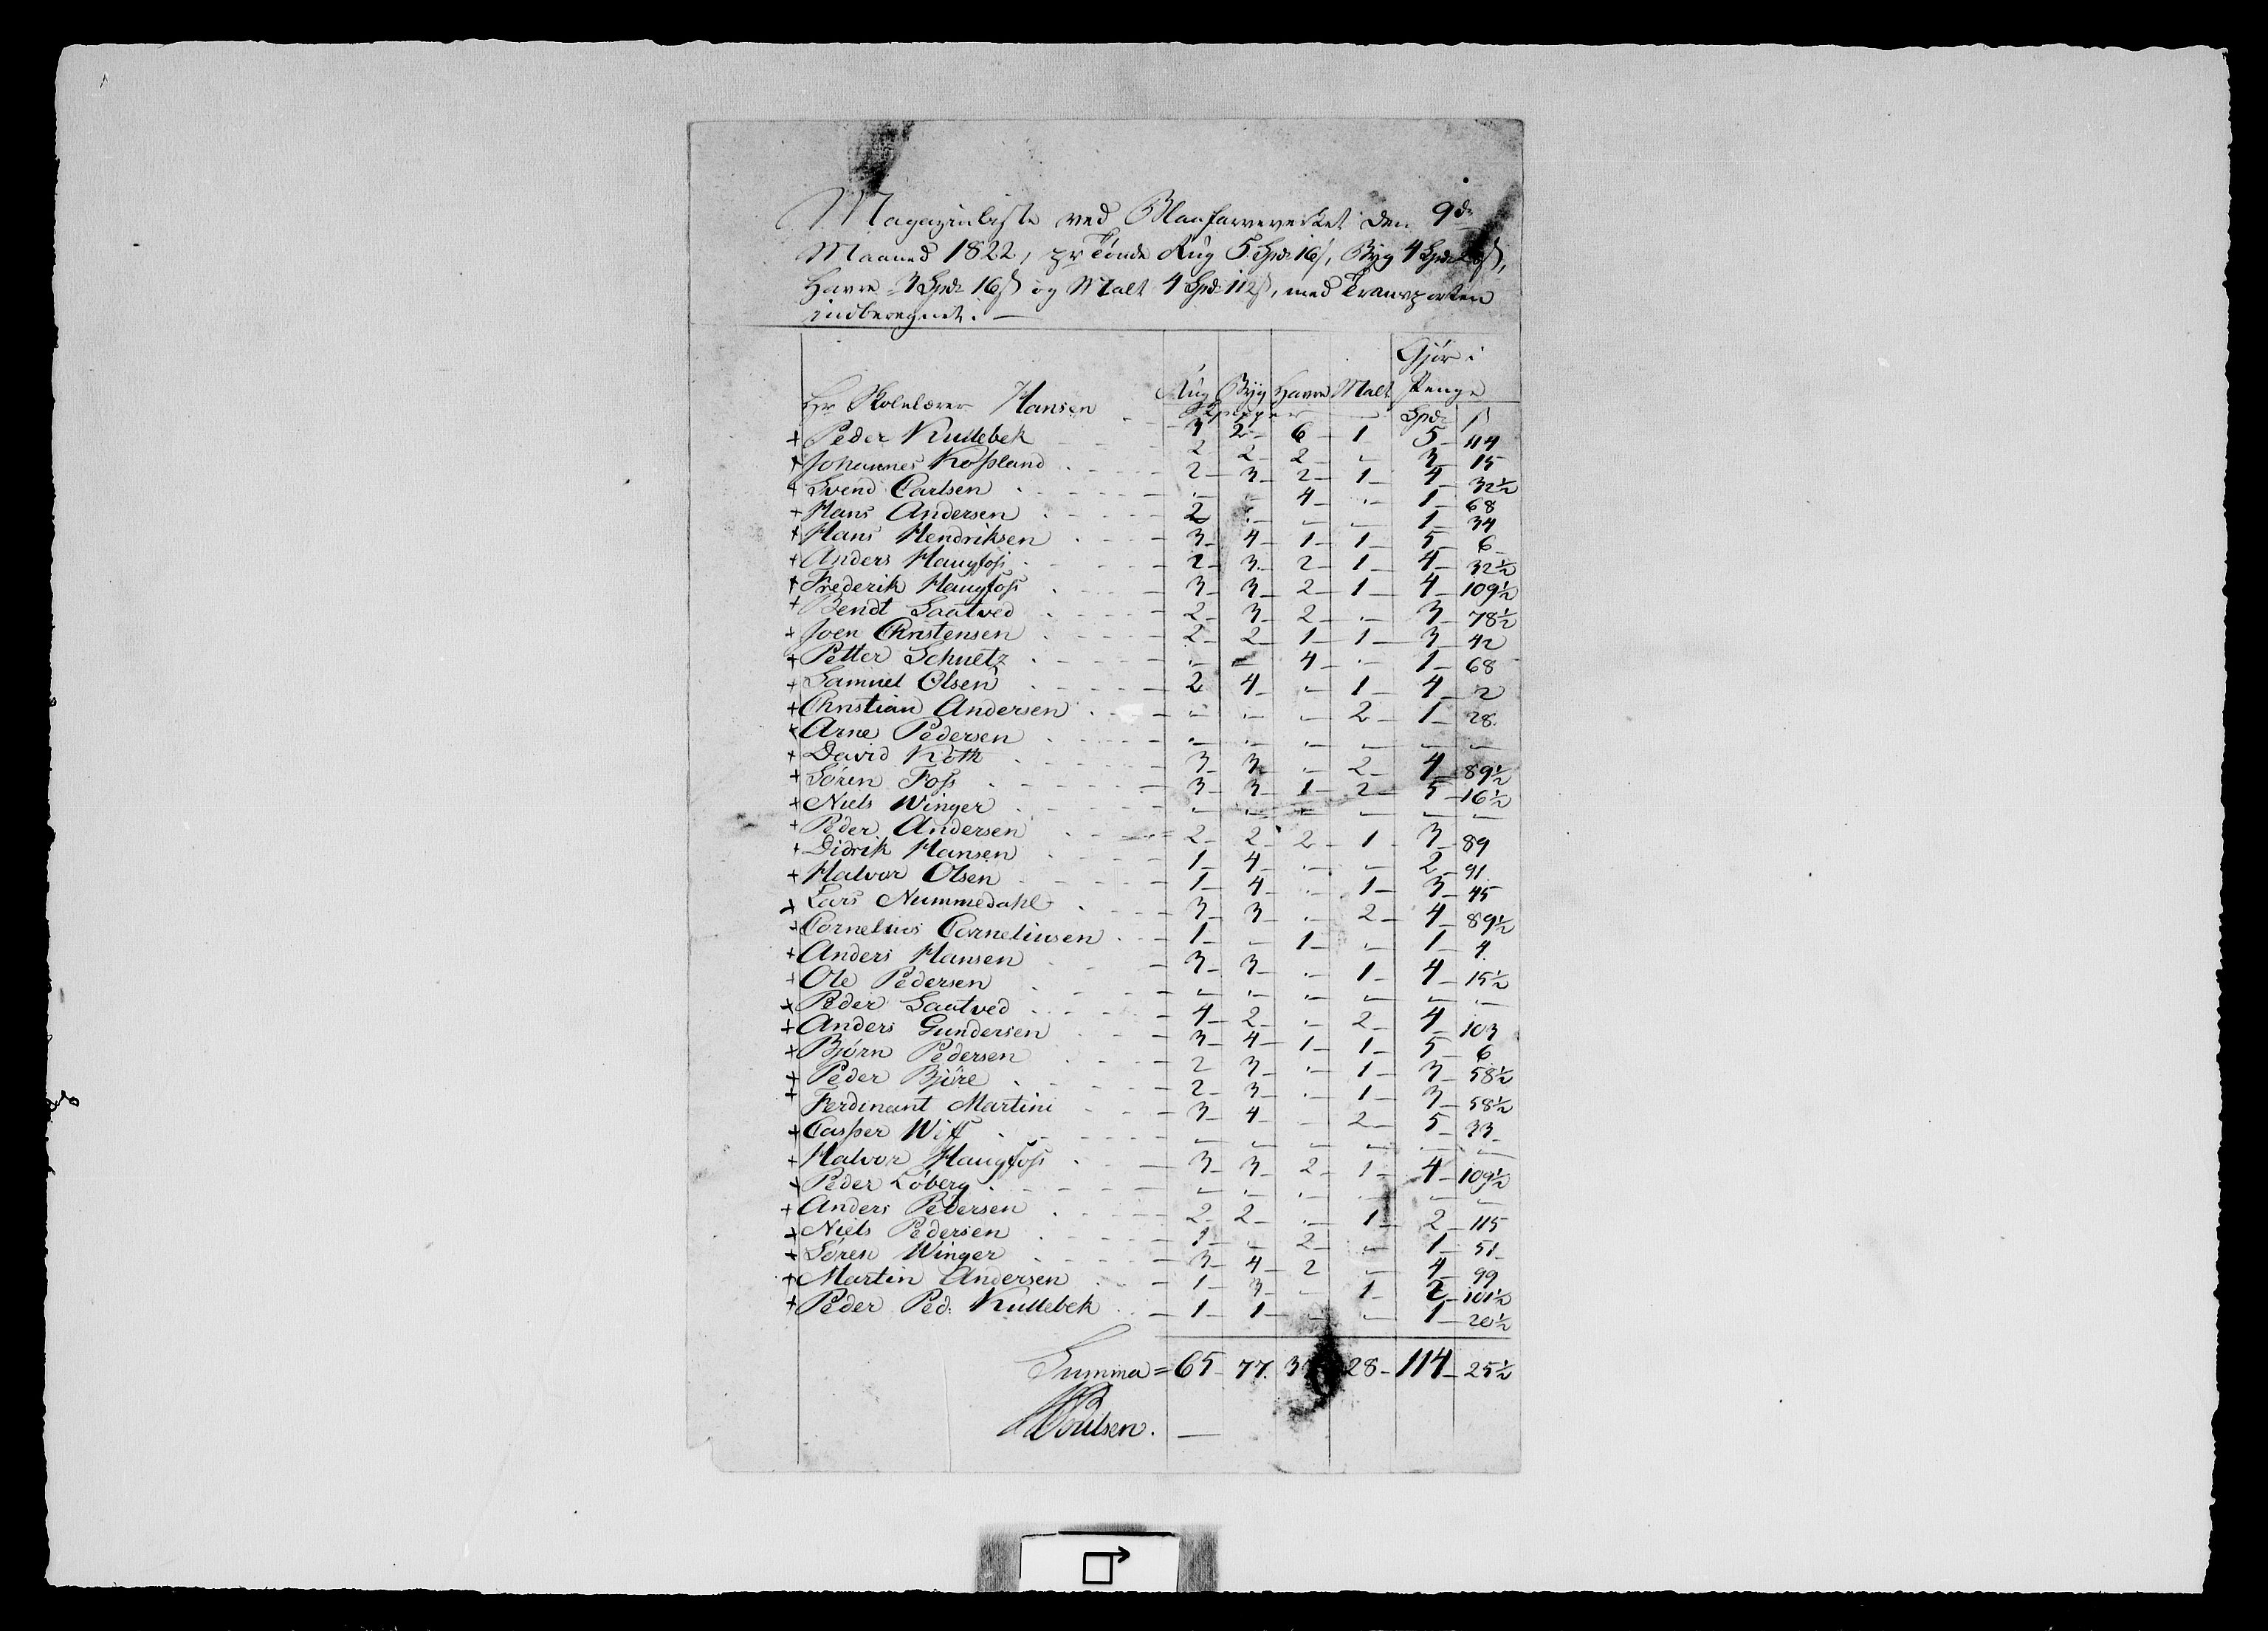 Magazinliste ved Blaafarveverket den 9de
Maaned 1822, pr Tönde Rug 5 Spd 16 ß, Byg 4 Spd ß,
Havre 3 Spd 16 ß og Malt 4 Spd 112 ß, med Transporten
indberegnet. —
Gjör i
Rug Byg Havre Malt Penge
Skjepper — Spd ß
Hr Skolelærer Hansen - 3 2 6 1 5 114
+ Peder Kullebek - 2 2 2 - 3 15
+ Johannes Kopland - 2 3 2 1 4 32½
+ Svend Carlsen - - - 4 - 1 68
+ Hans Andersen - 2 - - - 1 34
+ Hans Hendriksen - 3 4 1 1 5 6
+ Anders Haugfoss - 2 3 2 1 4 32½
+ Frederik Haugfoss - 3 3 2 1 4 109½
+ Bendt Saatved - 2 3 2 - 3 78½
+ Joen Christensen - 2 2 1 1 3 42
+ Petter Schueltz - - - 4 - 1 68
+ Samuel Olsen - 2 4 - 1 4 2
+ Christian Andersen - - - - 2 1 28
+ Arne Pedersen - - - - - - -
+ David Köth - 3 3 - 2 4 89½
+ Sören Foss - 3 3 1 2 5 16½
+ Niels Winger - - - - - - -
+ Peder Andersen - 2 2 2 1 3 89
+ Didrik Hansen - 1 4 - - 2 91
+ Halvor Olsen - 1 4 - 1 3 45
+ Lars Nummedahl - 3 3 - 2 4 89½
+ Cornelius Corneliusen - 1 - 1 - 1 4
+ Anders Hansen - 3 3 - 1 4 15½
+ Ole Pedersen - - - - - - -
+ Peder Saatved - 4 2 - 2 4 103
+ Anders Gundersen - 3 4 1 1 5 6
+ Björn Pedersen - 2 3 - 1 3 58½
+ Peder Björe - 2 3 - 1 3 58½
+ Ferdinant Martini - 3 4 - 2 5 33
+ Casper Wiff - - - - - - -
+ Halvor Haugfoss - 3 3 2 1 4 109½
+ Peder Löberg - - - - - - -
+ Anders Pedersen - 2 2 - 1 2 115
+ Niels Pedersen - 1 - 2 - 1 51
+ Sören Winger - 3 4 2 - 4 99
+ Martin Andersen - 1 3 - 1 2 101½
+ Peder Ped: Kullebek - 1 1 - - 1 20½
Summa = 65 77 28 114 25½
Poulsen. —